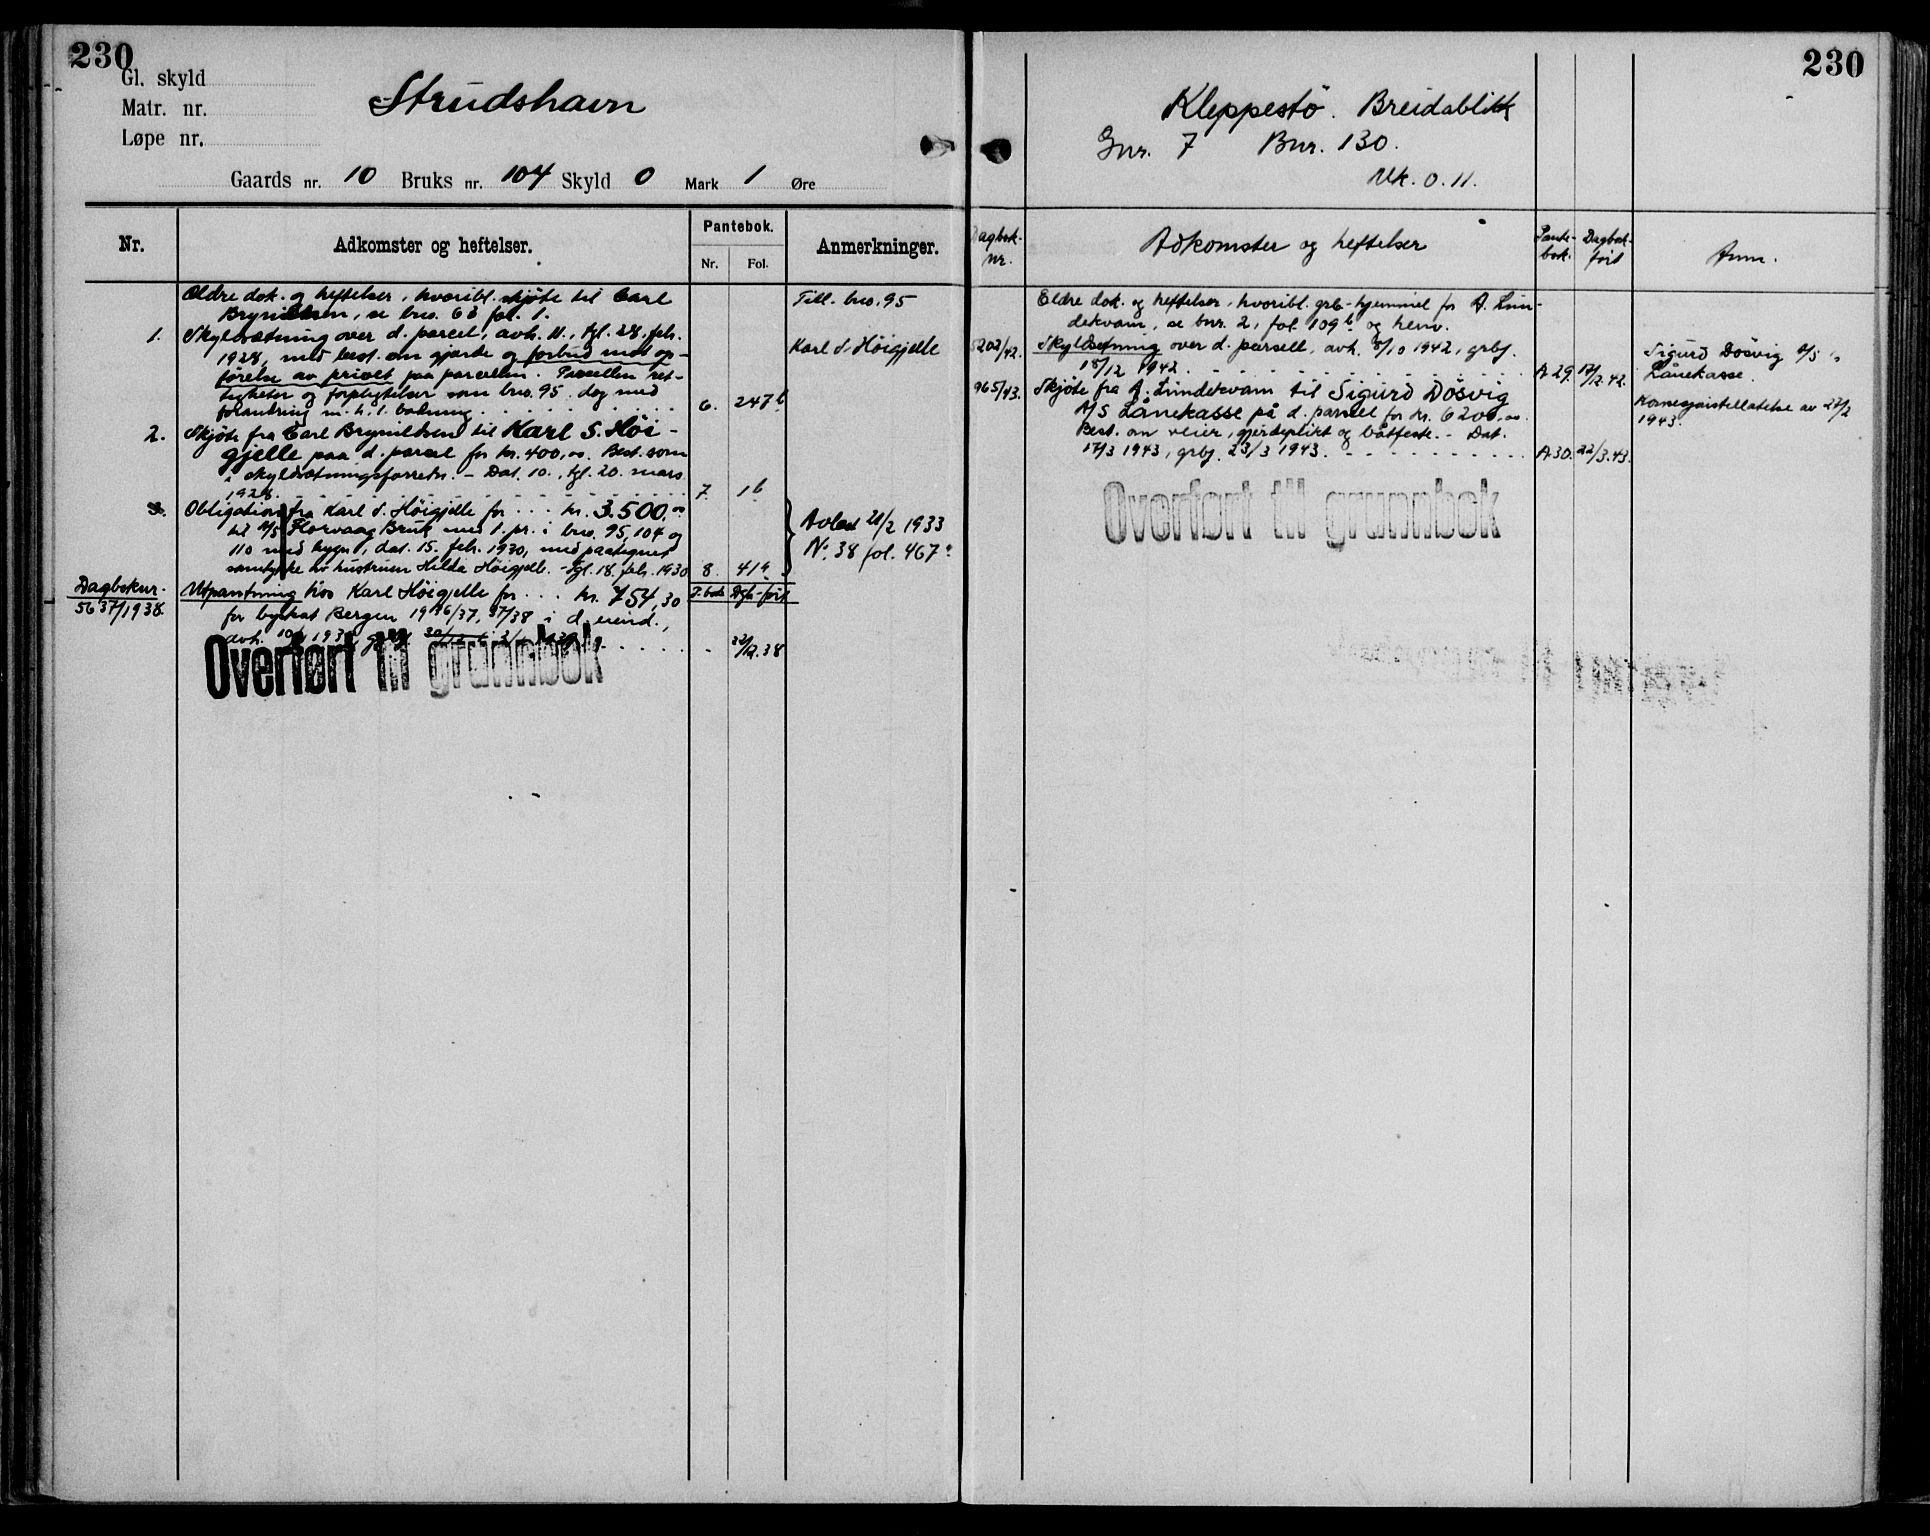 230
Gl. skyld
Matr. nr.
Løpe nr.
Strudshavn
Gaards nr. 10 Bruks nr. 104 Skyld 0 Mark 1 Øre
Nr.
Adkomster og heftelser.
Pantebok.
Nr. Fol.
Anmerkninger.
Ældre dok. og heftelser, hvoribl. skjøte til Carl
Brynildsen, se bno. 63 fol. 1.
Till. bno. 95
1. Skyldsætning over d. parcel, avh. 11., tgl. 28. feb.
1928, med best. om gjærde og forbud mot op-
førelse av privet paa parcellen. Parcellen ret-
tigheter og forpligtelser som bno. 95, dog med
forandring m. h. t. bolining 6. 247b
Karl S. Høigjelle
2. Skjøte fra Carl Brynildsen til Karl S. Høi-
gjelle paa d. parcel for kr. 400,00. Best. som
i skyldsætningsforretn. - Dat. 10., tgl. 20. mars
1928. 7. 1b
3. Obligation fra Karl S. Høigjelle for kr. 3.500,00
til A/S Florvaag Bruk med 1. pr. i bno. 95, 104 og
110 med bygn., dat. 15. feb. 1930, med paategnet
samtykke av hustruen Hilda Høigjelle. - Tgl. 18. feb. 1930 8. 41a
Avlest 21/2 1933
No. 38 fol. 467a
Dagboknr.
5637/1938.
Utpantning hos Karl Høigjelle for kr. 754,30
P.bok Dgb-ført
for byskat Bergen 1936/37, 37/38 i d. eiend.,
22/12.38
Overført til grunnbok
230
Kleppestö. Breidablikk
Gnr. 7 Bnr. 130.
Mk. 0.11.
Dagbok-
nr.
Adkomster og heftelser
Pante-
bok.
Dagbok-
ført
Anm.
Eldre dok. og heftelser, hvoribl. grb-hjemmel for A. Lin-
dekvam, se bnr. 2, fol. 109b og henv.
5202/42. Skyldsetning over d. parsell, avh. 8/10 1942, grbf.
18/12 1942. A.29. 17/12.42.
Sigurd Dösvig A/S
Lånekasse.
965/43. Skjøte fra A. Lindekvam til Sigurd Dösvig
A/S Lånekasse på d. parsell for kr. 6200,00.
Best. om veier, gjerdeplikt og båtfeste. - Dat.
17/3 1943, grbf. 23/3 1943. A.30. 22/3.43.
Konsesjonstillatelse av 27/2
1943.
Overført til grunnbok